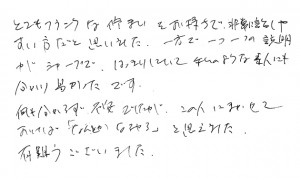 とてもフランクな佇まいをお持ちで、非常に話しや
すい方だと思いました。一方で一つ一つの説明
がシャープで、はっきりしていて私のような素人にも
分かり易かったです。
何も分からず不安でしたが、この人にまかせて
おけば「なんとかなるやろ」と思えました。
有難うございました。